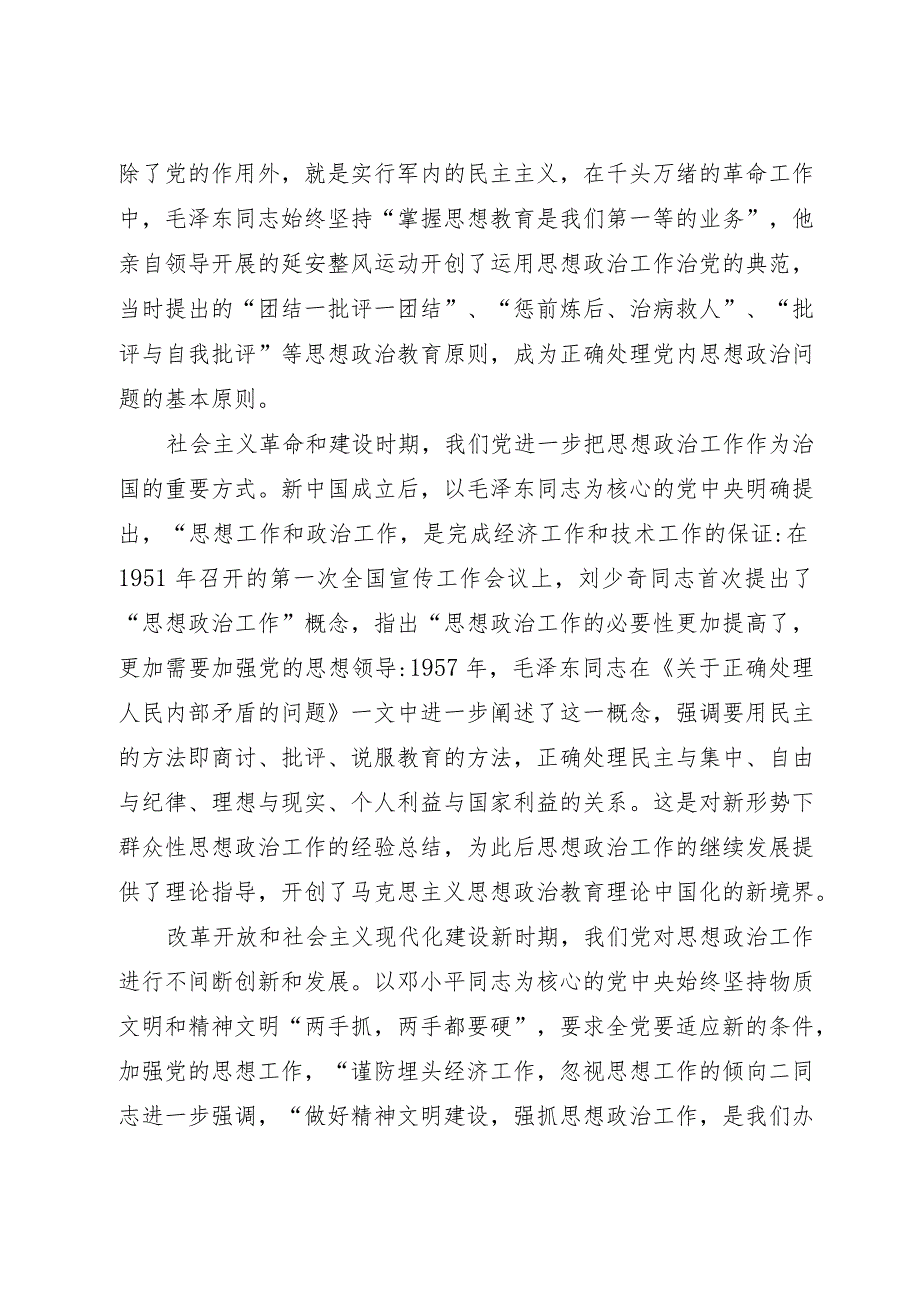 除了党的作用外，就是实行军内的民主主义，在千头万绪的革命工作
中，毛泽东同志始终坚持“掌握思想教育是我们第一等的业务”，他
亲自领导开展的延安整风运动开创了运用思想政治工作治党的典范，
当时提出的“团结一批评一团结”、“惩前炼后、治病救人”、“批
评与自我批评”等思想政治教育原则，成为正确处理党内思想政治问
题的基本原则。
社会主义革命和建设时期，我们党进一步把思想政治工作作为治
国的重要方式。新中国成立后，以毛泽东同志为核心的党中央明确提
出，“思想工作和政治工作，是完成经济工作和技术工作的保证:在
1951年召开的第一次全国宣传工作会议上，刘少奇同志首次提出了
“思想政治工作”概念，指出“思想政治工作的必要性更加提高了，
更加需要加强党的思想领导:1957年，毛泽东同志在《关于正确处理
人民内部矛盾的问题》一文中进一步阐述了这一概念，强调要用民主
的方法即商讨、批评、说服教育的方法，正确处理民主与集中、自由
与纪律、理想与现实、个人利益与国家利益的关系。这是对新形势下
群众性思想政治工作的经验总结，为此后思想政治工作的继续发展提
供了理论指导，开创了马克思主义思想政治教育理论中国化的新境界。
改革开放和社会主义现代化建设新时期，我们党对思想政治工作
进行不间断创新和发展。以邓小平同志为核心的党中央始终坚持物质
文明和精神文明“两手抓，两手都要硬”，要求全党要适应新的条件，
加强党的思想工作，“谨防埋头经济工作，忽视思想工作的倾向二同
志进一步强调，“做好精神文明建设，强抓思想政治工作，是我们办